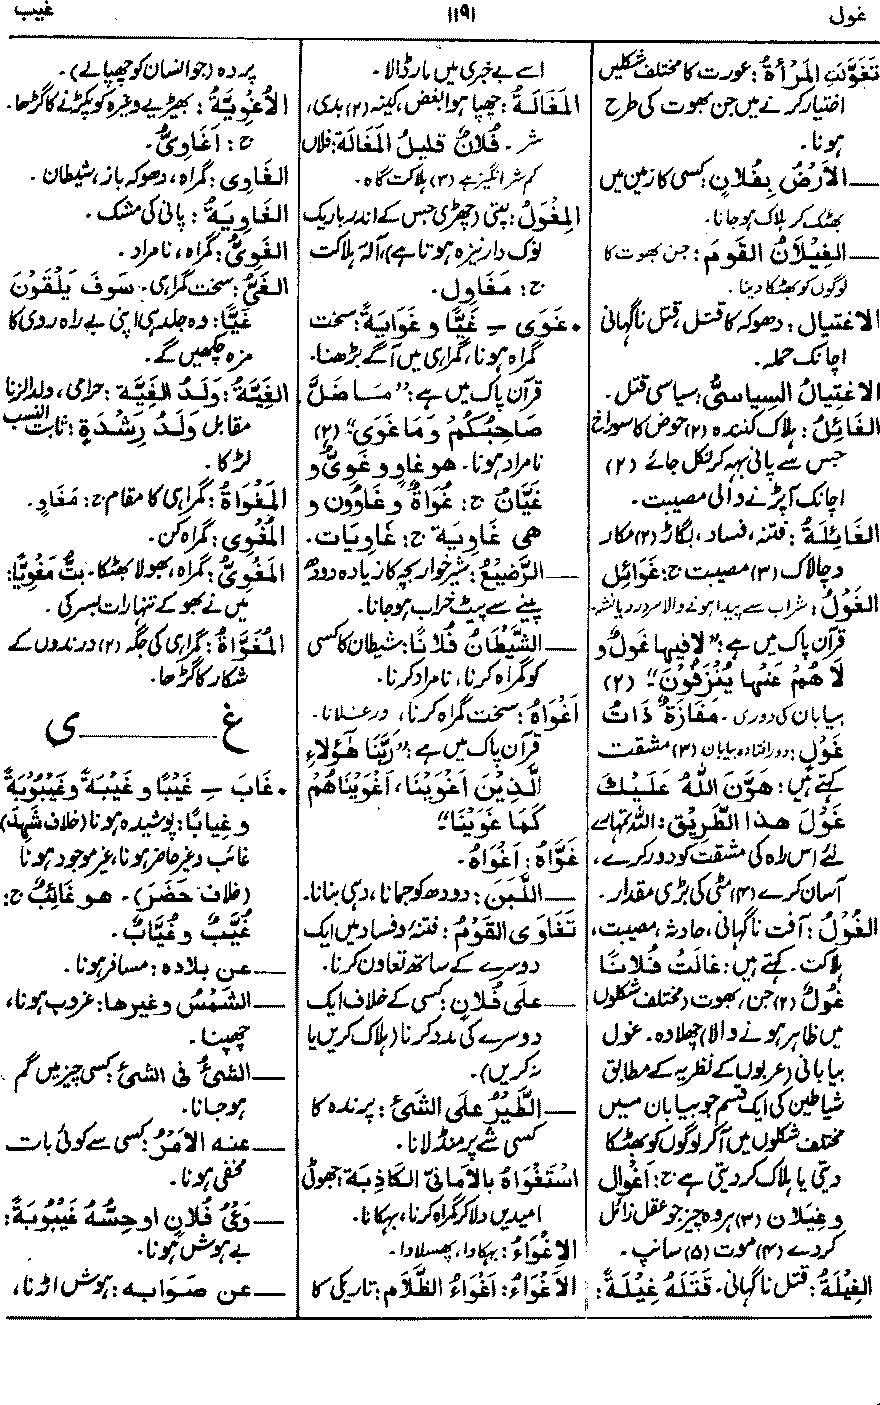 غول
۱۱۹۱
غیب
تَغَوَّلَتِ المَرْأَةُ: عورت کا مختلف شکلیں
اختیار کرنے میں جن بھوت کی طرح
ہونا۔
ــــ الأرْضُ بِفُلانٍ: کسی کا زمین میں
بھٹک کر ہلاک ہو جانا۔
ــــ الغِيْلَانُ القَوْمَ: جن بھوت کا
لوگوں کو بھٹکا دینا۔
الاغتِيال: دھوکہ کا قتل، قتل ناگہانی
اچانک حملہ۔
الاغتِيالُ السياسيُّ: سیاسی قتل۔
الغَائِلُ: ہلاک کنندہ (۲) حوض کا سوراخ
جس سے پانی بہہ کر نکل جائے (۲)
اچانک آپڑنے والی مصیبت۔
الغَائِلَةُ: فتنہ، فساد، بگاڑ (۲) مکار
و چالاک (۳) مصیبت ج: غَوَائِل
الغَوْلُ: شراب سے پیدا ہونے والا سر درد یا نشہ۔
قرآن پاک میں ہے: ”لَا فِيهَا غَولٌ و
لَا هُمْ عَنْهَا يُنْزَفُونَ“ (۲)
بیابان کی دوری۔ مَفَازَةٌ ذَاتُ
غَوْلٍ: دور افتادہ بیابان (۳) مشقت
کہتے ہیں: هَوَّنَ اللّٰهُ عَلَيْكَ
غَوْلَ هذا الطَّرِيق: اللہ تمہارے
لئے اس راہ کی مشقت کو دور کرے،
آسان کرے (۴) مٹی کی بڑی مقدار۔
الغُوْلُ: آفت ناگہانی، حادثہ، مصیبت،
ہلاکت۔ کہتے ہیں: غَالَتْ فُلَانًا
غُولٌ (۲) جن، بھوت (مختلف شکلوں
میں ظاہر ہونے والا) چھلاوہ۔ غول
بیابانی (عربوں کے نظریہ کے مطابق
شیاطین کی ایک قسم جو بیابان میں
مختلف شکلوں میں آکر لوگوں کو بھٹکا
دیتی یا ہلاک کردیتی ہے ج: أَغْوَال
و غِيلَان (۳) ہر وہ چیز جو عقل زائل
کردے (۴) موت (۵) سانپ۔
الغِيْلَةُ: قتل ناگہانی۔ قَتَلَهُ غِيْلَةً:
اسے بے خبری میں مار ڈالا۔
المَغَالَةُ: چھپا ہوا بغض، کینہ (۲) بدی،
شر۔ فُلانٌ قليلُ المَغَالَة: فلاں
کم شر انگیز ہے (۳) ہلاکت گاہ۔
المِغْوَلُ: پتی (چھڑی جس کے اندر باریک
نوک دار نیزہ ہوتا ہے)، آلۂ ہلاکت
ج: مَغَاوِل۔
• غَوَى ــِـ غَيًّا و غَوَايَةً: سخت
گمراہ ہونا، گمراہی میں آگے بڑھنا۔
قرآن پاک میں ہے: ”مَا ضَلَّ
صَاحِبُكُمْ وَمَا غَوَى“ (۲)
نامراد ہونا۔ هو غاوٍ و غَوِيٌّ و
غَيَّانُ ج: غُوَاةٌ و غَاوُونَ و
هي غَاوِيَة ج: غَاوِيَات۔
ــــ الرَّضِيْعُ: شیر خوار بچہ کا زیادہ دودھ
پینے سے پیٹ خراب ہو جانا۔
ــــ الشَّيْطَانُ فُلانًا: شیطان کا کسی
کو گمراہ کرنا، نامراد کرنا۔
أَغْوَاهُ: سخت گمراہ کرنا، ورغلانا۔
قرآن پاک میں ہے: ”رَبَّنَا هَؤُلَاءِ
الَّذِيْنَ أَغْوَيْنَا، أَغْوَيْنَاهُمْ
كَمَا غَوَيْنَا“
غَوَّاهُ: أَغْوَاهُ۔
ــــ اللَّبَنَ: دودھ کو جمانا، دہی بنانا۔
تَغَاوَى القَوْمُ: فتنہ و فساد میں ایک
دوسرے کے ساتھ تعاون کرنا۔
ــــ على فُلَانٍ: کسی کے خلاف ایک
دوسرے کی مدد کرنا (ہلاک کریں یا
نہ کریں)۔
ــــ الطَّيْرُ عَلَى الشَّئ: پرندہ کا
کسی شے پر منڈلانا۔
اسْتَغْوَاهُ بِالأَمَانِيّ الكَاذِبَة: جھوٹی
امیدیں دلا کر گمراہ کرنا، بہکانا۔
الإِغْوَاءُ: بہکاوا، پھسلاوا۔
الأَغْوَاءُ: أَغْوَاءُ الظَّلَام: تاریکی کا
پردہ (جو انسان کو چھپا لے)۔
الأُغْوِيَّةُ: بھیڑیے وغیرہ کو پکڑنے کا گڑھا۔
ج: أَغَاوِيُّ۔
الغَاوِى: گمراہ، دھوکہ باز، شیطان۔
الغَاوِيَةُ: پانی کی مشک۔
الغَوِيُّ: گمراہ، نامراد۔
الغَيُّ: سخت گمراہی۔ سَوفَ يَلْقَوْنَ
غَيًّا: وہ جلد ہی اپنی بے راہ روی کا
مزہ چکھیں گے۔
الغَيَّةُ: وَلَدُ الغَيَّة: حرامی، ولد الزنا
مقابل وَلَدُ رَشْدَةٍ: ثابت النسب
لڑکا۔
المَغْوَاةُ: گمراہی کا مقام ج: مَغَاوٍ۔
المُغْوِى: گمراہ کن۔
المَغْوِيُّ: گمراہ، بھولا بھٹکا۔ بِتُّ مَغْوِيًّا:
میں نے بھوکے تنہا رات بسر کی۔
المُغَوَّاةُ: گمراہی کی جگہ (۲) درندوں کے
شکار کا گڑھا۔
غ ــــــــ ی
• غَابَ ــِـ غَيْبًا و غَيْبَةً و غَيْبُوبَةً
و غِيابًا: پوشیدہ ہونا (خلاف شَهِدَ)
غائب و غیر حاضر ہونا، غیر موجود ہونا
(خلاف حَضَرَ)۔ هو غَائِبٌ ج:
غُيَّبٌ و غُيَّابٌ۔
ــــ عن بِلَادِه: مسافر ہونا۔
ــــ الشَّمْسُ وغيرها: غروب ہونا،
چھپنا۔
ــــ الشئُ فى الشئ: کسی چیز میں گم
ہو جانا۔
ــــ عنه الأَمْرُ: کسی سے کوئی بات
مخفی ہونا۔
ــــ وَعْيُ فُلَانٍ أوحِسُّهُ غَيْبُوبَةً:
بے ہوش ہونا۔
ــــ عن صَوَابِه: ہوش اڑنا،